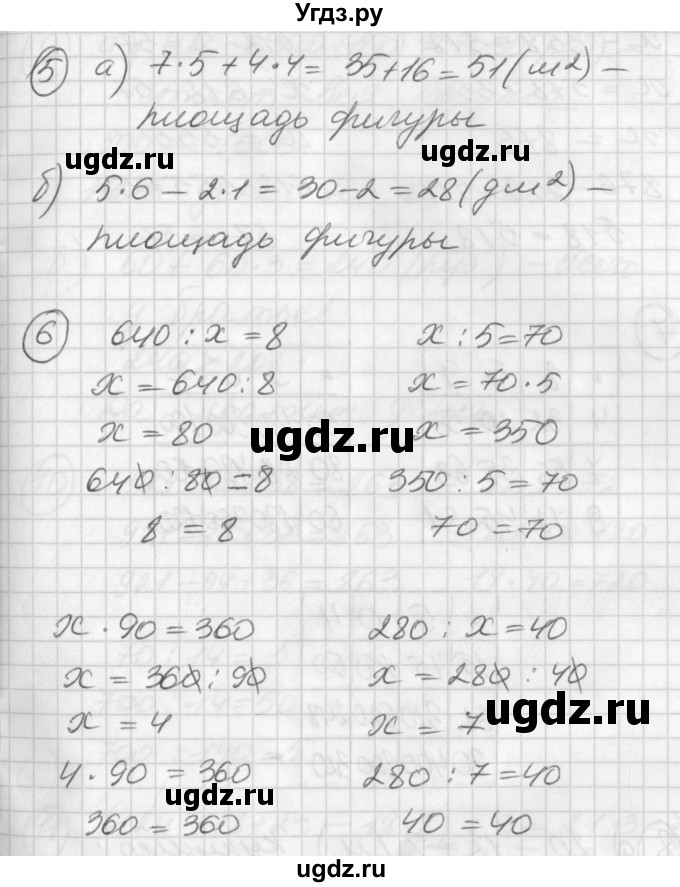 Угдз.ру
5 а) 7·5+4·4= 35+16=51(м²) –
площадь фигуры
ugdz.ru ugdz.ru
б) 5·6 – 2·1 = 30-2 =28(дм²) –
площадь фигуры
6 640 : x = 8 x : 5 = 70
x = 640:8 x = 70·5
x = 80 x = 350
ugdz.ru
640 : 80 = 8 350 : 5 = 70
8 = 8 70 = 70
x · 90 = 360 280 : x = 40
x = 360 : 90 x = 280 : 40
x = 4 x = 7
ugdz.ru
4 · 90 = 360 280 : 7 = 40
ugdz.ru
360 = 360 40 = 40
ugdz.ru